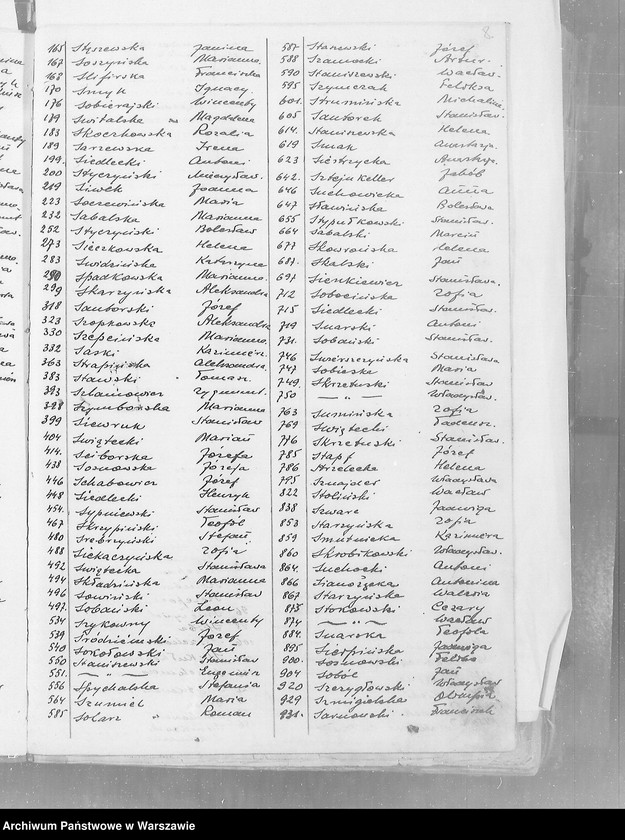 8
165 Styszewska Janina
167 Soszyńska Marianna.
168 Slifirska Franciszka
170 Smyk Ignacy.
176 Sobierajski Wincenty
179 Switalska Magdalena
183 Skoczkowska Rozalia
189 Sarzewska Irena
199. Siedlecki Antoni
200 Styczyński Mieczysław.
219 Siwek Joanna
223 Soczewińska Maria
232 Sabalska Marianna
252 Styczyński Bolesław
273 Sieczkowska Helena
283 Świdzińska Katarzyna
290 Spadkowska Marianna.
299 Skarzyńska Aleksandra
318 Samborski Józef
323 Szopkowska Aleksandra
330 Szepcińska Marianna.
332 Saski Kazimierz.
363 Strapińska Aleksandra.
383 Stawski Tomasz.
393 Szlamowicz Zygmunt.
398 Szymborska Marianna
399 Siewruk Stanisław
404 Swiątecki Marian
414. Sciborska Józefa
438 Sosnowska Józefa
446 Schabowicz Józef
448 Siedlecki Henryk
454. Sypniewski Stanisław
467 Skrzypiński Teofil
480 Srebrzyński Stefan
488 Siekaczyńska Zofia
492 Swiątecka Stanisława
494 Składzińska Marianna
496 Sowiński Stanisław
497. Sobański Leon
534 Szykowny Wincenty
539 Środzieński Józef
540 Sokołowski Jan
550 Staniszewski Stanisław
551. — " — Eugeniusz
556 Spychalska Stefania
564 Szumiel Maria
585 Solarz Roman
587 Staniewski Józef
588 Szamocki Artur.
590 Staniszewski Wacław.
595 Szymczak Feliksa
601. Strumińska Michalina.
605 Santorek Stanisław.
614. Staniszewska Helena
619 Smak Anastazja.
623 Siestrzycka Anastazja.
642. Sztejn Keller Jakób
646 Suchowiecka Anna
647 Sławińska Bolesława
655 Stypułkowski Stanisław.
664 Sabalski Marcin
677 Skowrońska Helena
687. Skalski Jan
697 Sienkiewicz Stanisława.
712 Sobocińska Zofia
715 Siedlecki Stanisław.
719 Snarski Antoni
731. Sobański Stanisław.
746 Swierszczyńska Stanisława
747 Sobieska Maria
749. Skrzetuski Stanisław
750 — " — Władysław.
763 Sumińska Zofia
769 Swiątecki Tadeusz.
776 Skrzetuski Stanisław.
785 Stapf Józef
786 Strzelecka Helena
795 Sznajder Władysława
822 Stoliński Wacław
838 Szwarc Jadwiga
853 Starzyńska Zofia
859 Smutnicka Kazimiera
860 Skrobikowski Władysław.
864. Suchocki Antoni
866 Sianożęcka Antonina
867 Starzyńska Waleria
873 Stokowski Cezary
874 — " — Wacław
884. Snarska Teofila
895 Sierpińska Jadwiga
900. Sosnowski Feliks
904 Soból Jan
920 Szerygłowski Władysław
929 Szmigielska Olimpia
931. Sarnowski Franciszek
Archiwum Państwowe w Warszawie